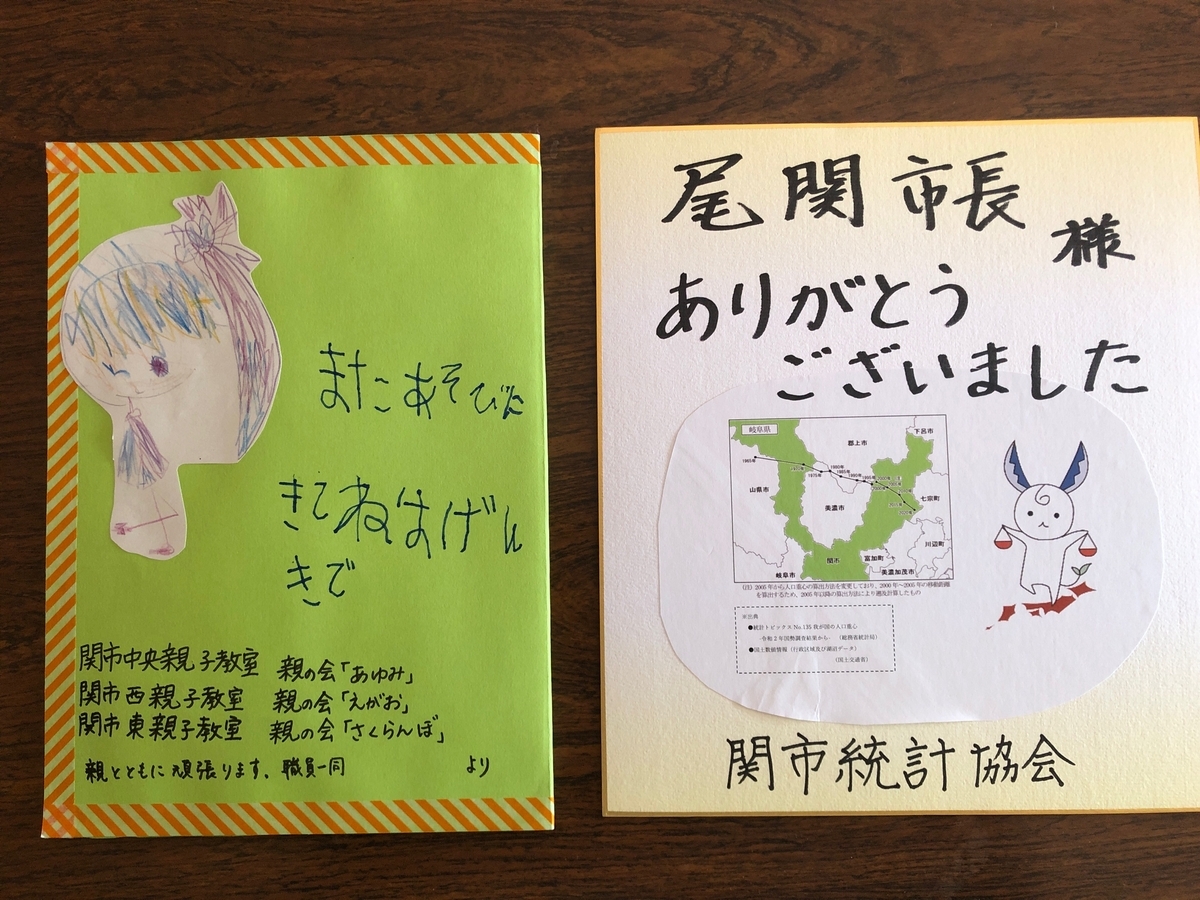 またあそびに
きてねはげんきで
関市中央親子教室 親の会「あゆみ」
関市西親子教室 親の会「えがお」
関市東親子教室 親の会「さくらんぼ」
親とともに頑張ります、職員一同 より
尾関市長様
ありがとう
ございました
岐阜県
下呂市
郡上市
山県市
七宗町
美濃市
川辺町
関市
富加町
岐阜市
美濃加茂市
1965年
1975年
1980年
1985年
1990年
1995年
(注) 2005年から人口重心の算出方法を変更しており、2000年～2005年の移動距離
を算出するため、2005年以降の算出方法により遡及計算したもの
※出典
●統計トピックス No.135 我が国の人口重心
-令和2年国勢調査結果から- (総務省統計局)
●国土数値情報(行政区域及び湖沼データ)
(国土交通省)
関市統計協会